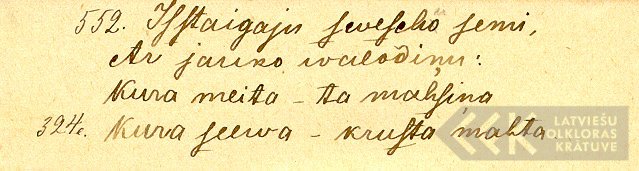 552. Isstaigaju swescho semi,
Ar jauko walodinu:
Kura meita – ta mahsina
324c. Kura seewa – krusta mahta
LATVIEŠU
FOLKLORAS
KRĀTUVE